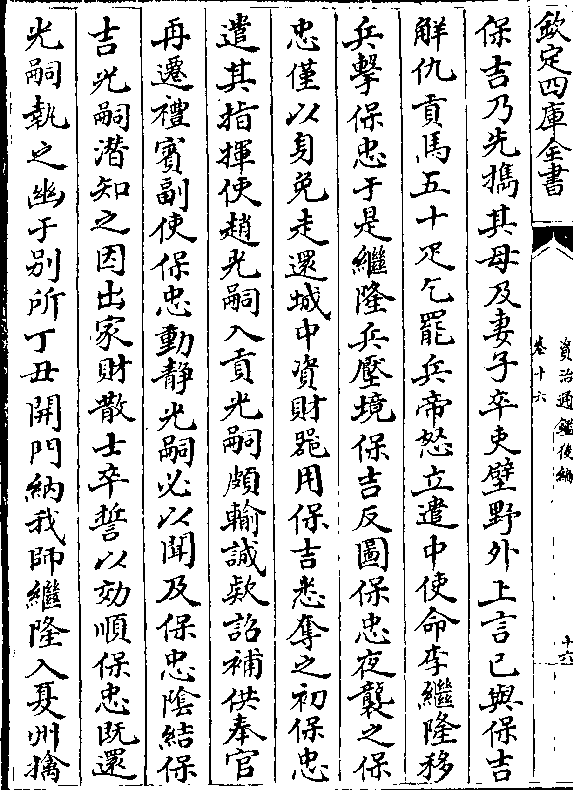 欽定四庫全書
資治通鑑後編
卷十六
十六
保吉乃先攜其母及妻子卒吏壁野外上言已與保吉
解仇貢馬五十疋乞罷兵帝怒立遣中使命李繼隆移
兵擊保忠于是繼隆兵壓境保吉反圖保忠夜襲之保
忠僅以身免走還城中資財器用保吉悉奪之初保忠
遣其指揮使趙光嗣入貢光嗣頗輸誠款詔補供奉官
再遷禮賓副使保忠動靜光嗣必以聞及保忠陰結保
吉光嗣潛知之因出家財散士卒誓以効順保忠既還
光嗣執之幽于别所丁丑開門納我師繼隆入夏州擒